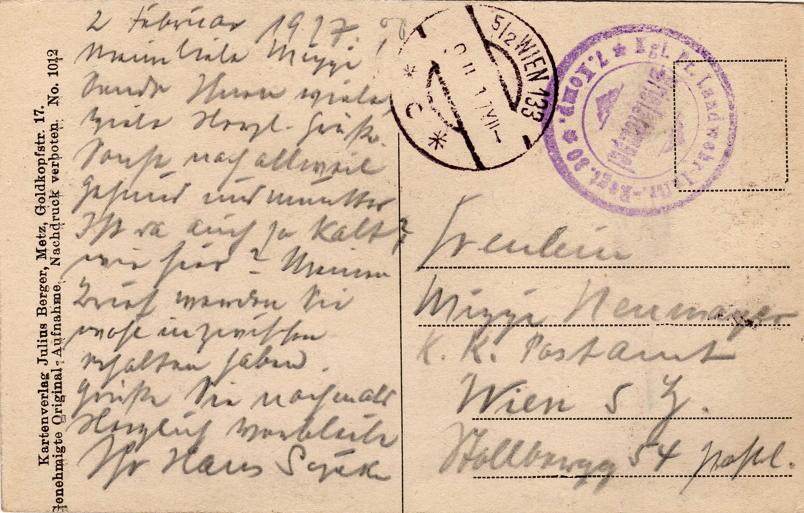 2 Februar 1917.
Meine liebe Mizzi!
Sende Ihnen viele
viele Herzl. Grüße.
noch allweil
gesund und munter
Ist es auch so kalt
wie hier? Meinen
Brief werden Sie
wohl inzwischen
erhalten haben.
Grüße Sie nochmals
Herzlich verbleibe
Ihr Hans
Freulein
Mizzi Neumayer
K. K. Postamt
Wien 5
54
Kartenverlag Julius Berger, Metz, Goldkopfstr. 17.
Genehmigte Original-Aufnahme, Nachdruck verboten. No. 1012
5/2 WIEN 133
* C *
Kgl. Pr. Landwehr-Inftr.-Regt. 30 * 7. Komp. *
Briefstempel